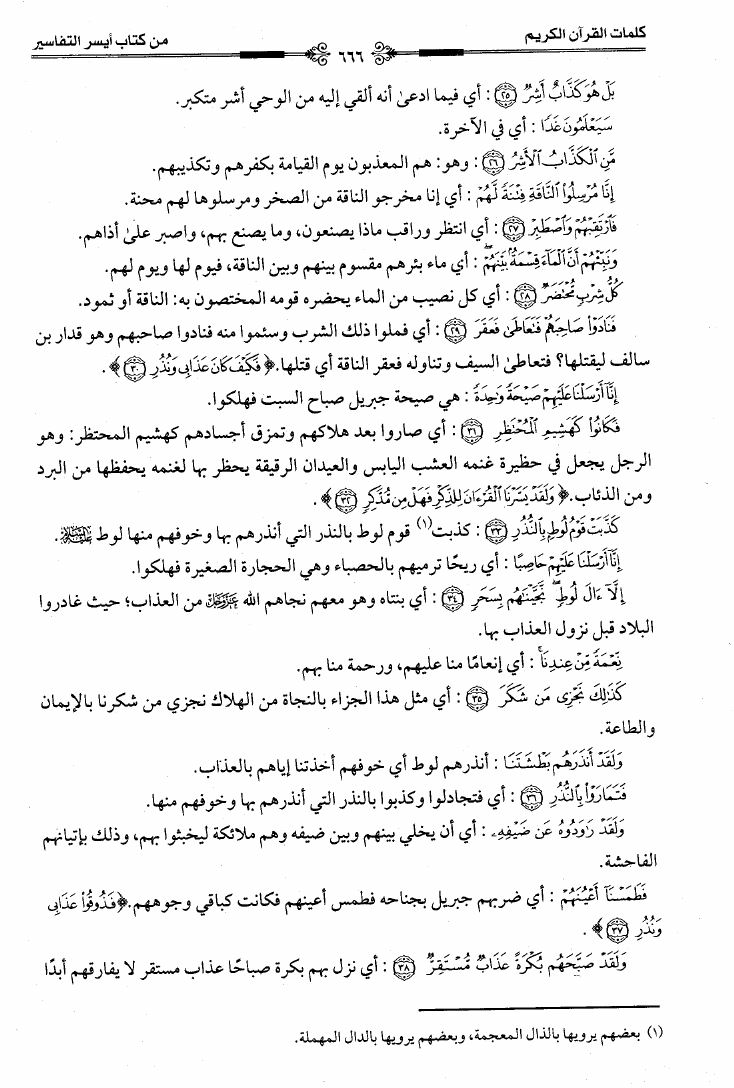 كلمات القرآن الكريم ٦٦٦ من كتاب أيسر التفاسير
بَلْ هُوَ كَذَّابٌ أَشِرٌ ۝٢٥ : أي فيما ادعىٰ أنه ألقي إليه من الوحي أشر متكبر.
سَيَعْلَمُونَ غَدًا : أي في الآخرة.
مَّنِ الْكَذَّابُ الْأَشِرُ ۝٢٦ : وهو: هم المعذبون يوم القيامة بكفرهم وتكذيبهم.
إِنَّا مُرْسِلُوا النَّاقَةِ فِتْنَةً لَّهُمْ : أي إنا مخرجو الناقة من الصخر ومرسلوها لهم محنة.
فَارْتَقِبْهُمْ وَاصْطَبِرْ ۝٢٧ : أي انتظر وراقب ماذا يصنعون، وما يصنع بهم، واصبر علىٰ أذاهم.
وَنَبِّئْهُمْ أَنَّ الْمَاءَ قِسْمَةٌ بَيْنَهُمْ : أي ماء بئرهم مقسوم بينهم وبين الناقة، فيوم لها ويوم لهم.
كُلُّ شِرْبٍ مُّحْتَضَرٌ ۝٢٨ : أي كل نصيب من الماء يحضره قومه المختصون به: الناقة أو ثمود.
فَنَادَوْا صَاحِبَهُمْ فَتَعَاطَىٰ فَعَقَرَ ۝٢٩ : أي فملوا ذلك الشرب وسئموا منه فنادوا صاحبهم وهو قدار بن
سالف ليقتلها؟ فتعاطىٰ السيف وتناوله فعقر الناقة أي قتلها. ﴿فَكَيْفَ كَانَ عَذَابِي وَنُذُرِ ۝٣٠﴾.
إِنَّا أَرْسَلْنَا عَلَيْهِمْ صَيْحَةً وَاحِدَةً : هي صيحة جبريل صباح السبت فهلكوا.
فَكَانُوا كَهَشِيمِ الْمُحْتَظِرِ ۝٣١ : أي صاروا بعد هلاكهم وتمزق أجسادهم كهشيم المحتظر: وهو
الرجل يجعل في حظيرة غنمه العشب اليابس والعيدان الرقيقة يحظر بها لغنمه يحفظها من البرد
ومن الذئاب. ﴿وَلَقَدْ يَسَّرْنَا الْقُرْءَانَ لِلذِّكْرِ فَهَلْ مِن مُّدَّكِرٍ ۝٣٢﴾.
كَذَّبَتْ قَوْمُ لُوطٍ بِالنُّذُرِ ۝٣٣ : كذبت(١) قوم لوط بالنذر التي أنذرهم بها وخوفهم منها لوط.
إِنَّا أَرْسَلْنَا عَلَيْهِمْ حَاصِبًا : أي ريحًا ترميهم بالحصباء وهي الحجارة الصغيرة فهلكوا.
إِلَّا ءَالَ لُوطٍ نَّجَّيْنَاهُم بِسَحَرٍ ۝٣٤ : أي بنتاه وهو معهم نجاهم الله من العذاب؛ حيث غادروا
البلاد قبل نزول العذاب بها.
نِّعْمَةً مِّنْ عِندِنَا : أي إنعامًا منا عليهم، ورحمة منا بهم.
كَذَٰلِكَ نَجْزِي مَن شَكَرَ ۝٣٥ : أي مثل هذا الجزاء بالنجاة من الهلاك نجزي من شكرنا بالإيمان
والطاعة.
وَلَقَدْ أَنذَرَهُم بَطْشَتَنَا : أنذرهم لوط أي خوفهم أخذتنا إياهم بالعذاب.
فَتَمَارَوْا بِالنُّذُرِ ۝٣٦ : أي فتجادلوا وكذبوا بالنذر التي أنذرهم بها وخوفهم منها.
وَلَقَدْ رَاوَدُوهُ عَن ضَيْفِهِ : أي أن يخلي بينهم وبين ضيفه وهم ملائكة ليخبثوا بهم، وذلك بإتيانهم
الفاحشة.
فَطَمَسْنَا أَعْيُنَهُمْ : أي ضربهم جبريل بجناحه فطمس أعينهم فكانت كباقي وجوههم. ﴿فَذُوقُوا عَذَابِي
وَنُذُرِ ۝٣٧﴾.
وَلَقَدْ صَبَّحَهُم بُكْرَةً عَذَابٌ مُّسْتَقِرٌّ ۝٣٨ : أي نزل بهم بكرة صباحًا عذاب مستقر لا يفارقهم أبدًا
(١) بعضهم يرويها بالذال المعجمة، وبعضهم يرويها بالدال المهملة.